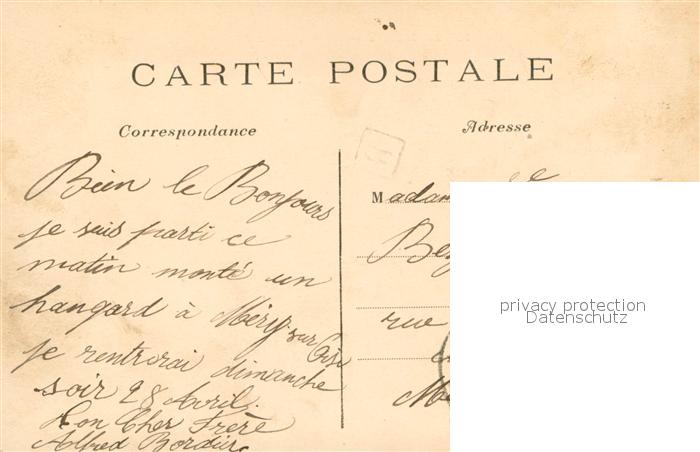 CARTE POSTALE
Correspondance
Adresse
Bien le Bonjours
je suis parti ce
matin monté un
hangard à Méry-sur Oise
je rentrerai dimanche
soir 28 Avril.
Ton Cher Frère
Alfred Bordier
Madam
rue
privacy protection
Datenschutz